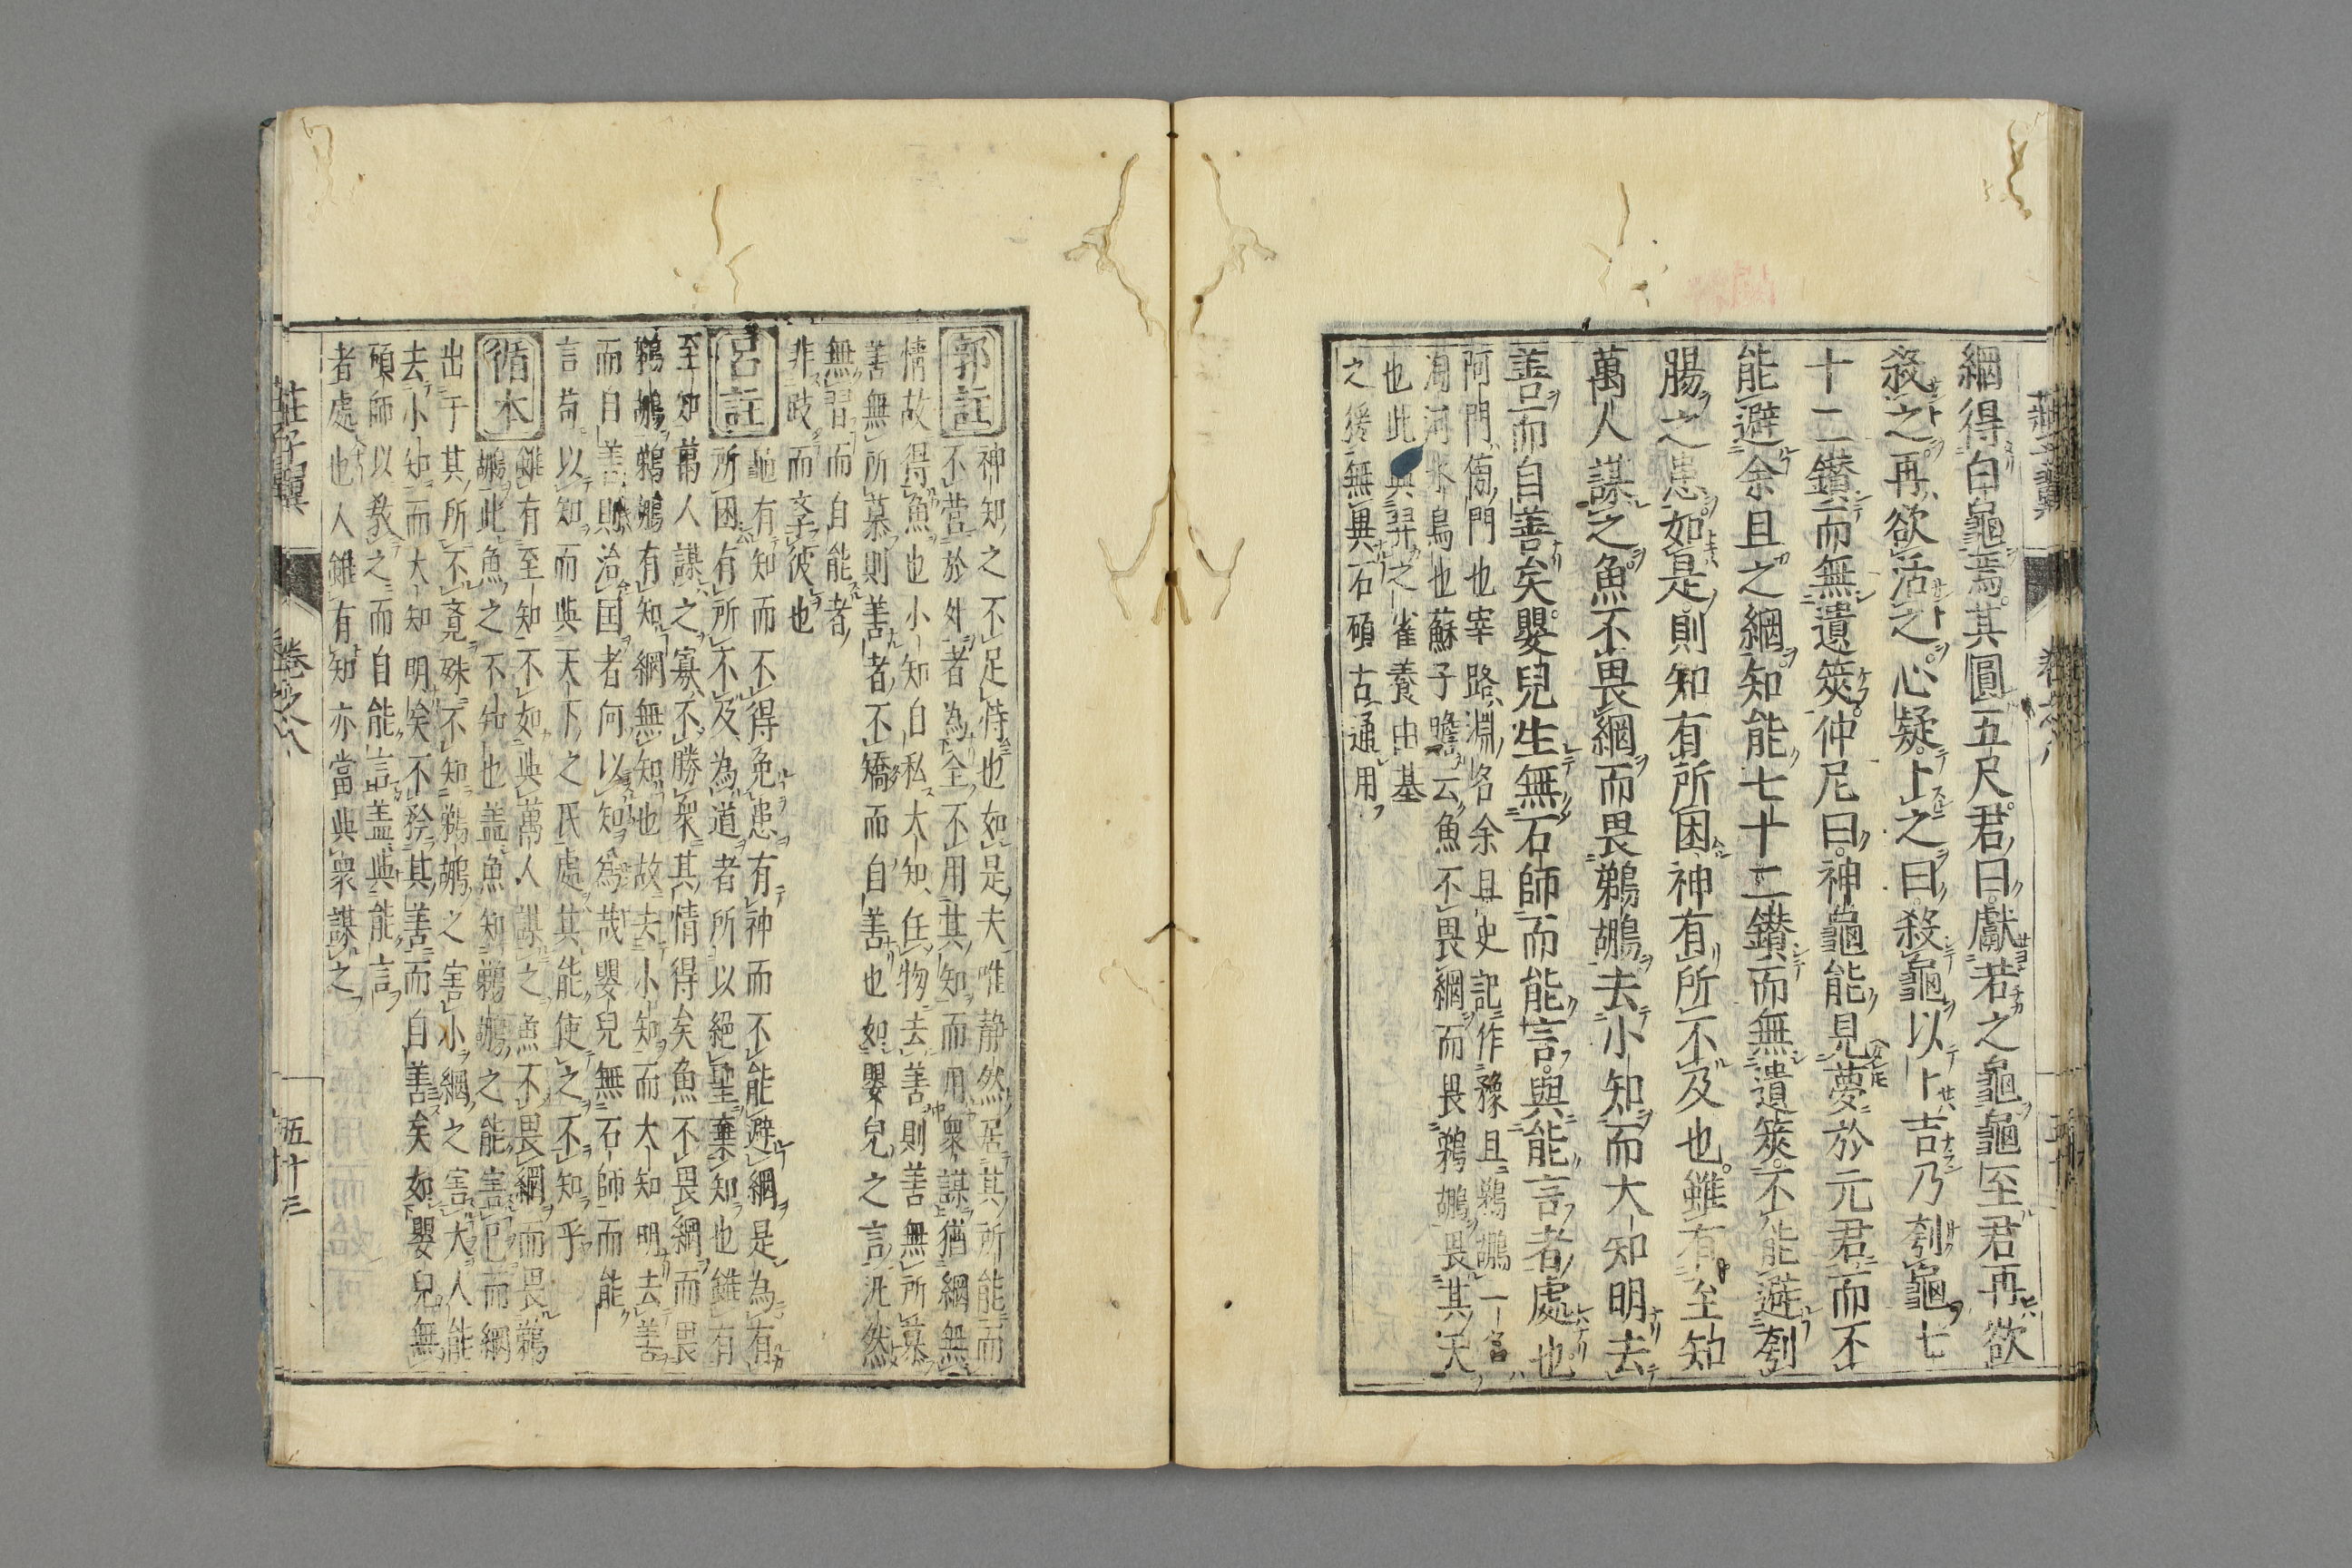 網得白龜焉其圓五尺君曰獻若之龜龜至君再欲
殺之再欲活之心疑卜之曰殺龜以卜吉乃刳龜七
十二鑽而無遺筴仲尼曰神龜能見夢於元君而不
能避余且之網知能七十二鑽而無遺筴不能避刳
腸之患如是則知有所困神有所不及也雖有至知
萬人謀之魚不畏網而畏鵜鶘去小知而大知明去
善而自善矣嬰兒生無石師而能言與能言者處也
阿門傍門也宰路淵名余且史記作豫且鵜鶘一名
淘河水鳥也蘇子瞻云魚不畏網而畏鵜鶘畏其天
也此與羿之雀養由基
之猨無異石碩古通用
郭註
神知之不足恃也如是夫唯静然居其所能而
不營於外者為全不用其知而用衆謀猶網無
情故得魚也小知自私大知任物去善則善無所慕
善無所慕則善者不矯而自善也如嬰兒之言汎然
無習而自能者
非跂而孛彼也
呂註
龜有知而不得免患有神而不能避網是為有
所困有所不及為道者所以絕聖棄知也雖有
至知萬人謀之寡不勝衆其情得矣魚不畏網而畏
鵜鶘鵜鶘有知網無知也故去小知而大知明去善
而自善則治国者何以知為哉嬰兒無石師而能
言苟以知而與天下之民處其能使之不知乎
循本
雖有至知不如與萬人謀之魚不畏網而畏鵜
鶘此魚之不知也盖魚知鵜鶘之能害己而網
出于其所不意殊不知鵜鶘之害小網之害大人能
去小知而大知明矣不矜其善而自善矣如嬰兒無
碩師以教之而自能言盖與能言
者處也人雖有知亦當與衆謀之
莊子翼
卷之八
五十三